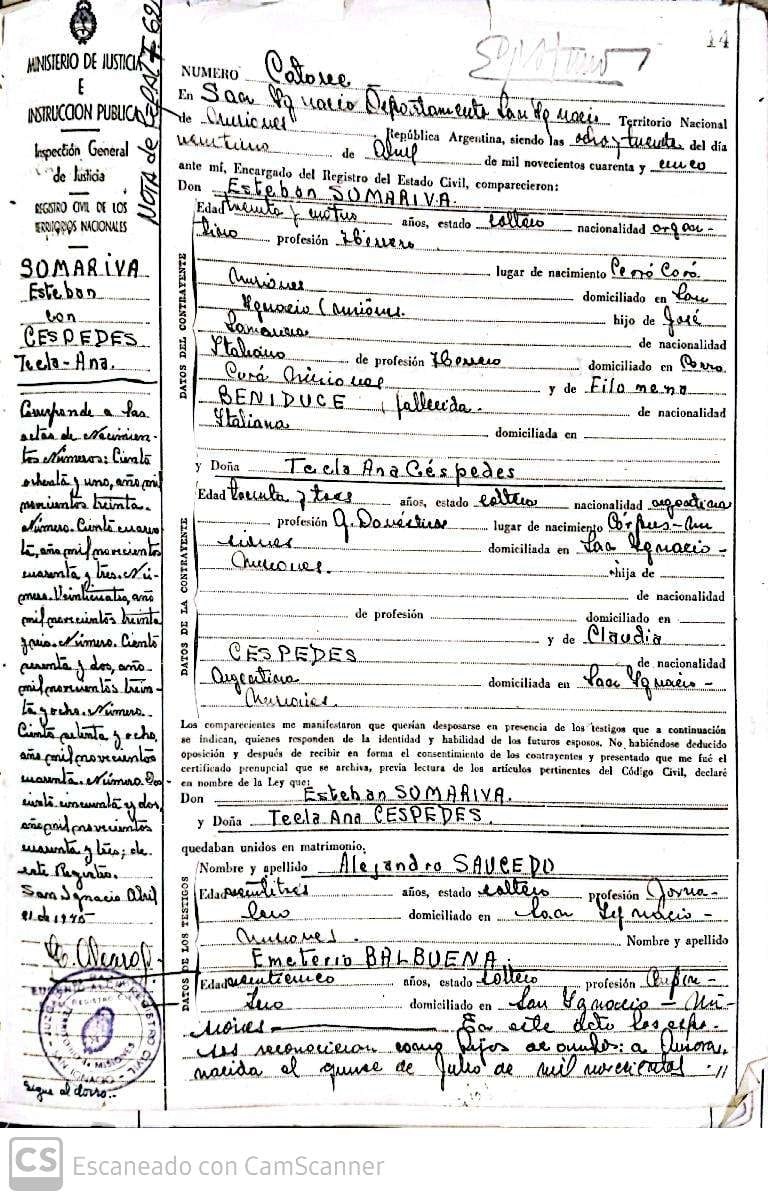 14
MINISTERIO DE JUSTICIA
E
INSTRUCCION PUBLICA
Inspección General
de Justicia
REGISTRO CIVIL DE LOS
TERRITORIOS NACIONALES
SOMARIVA
Esteban
con
CESPEDES
Tecla-Ana.
Corresponde a las
actas de Nacimien-
tos Números: Ciento
ochenta y uno, año mil
novecientos treinta.
Número. Ciento cuaren
ta, año mil novecientos
cuarenta y tres. Nú-
mero. Veinticuatro, año
mil novecientos treinta
y seis. Número. Ciento
y dos, año
mil novecientos trein-
ta y ocho. Número.
Ciento setenta y ocho,
año mil novecientos
cuarenta. Número. Dos-
ciento cincuenta y dos,
año mil novecientos
cuarenta y tres; de
este Registro.
San Ignacio Abril
21 de 1945
REGISTRO CIVIL
MISIONES
SAN IGNACIO
Sigue al dorso.-
NOTA de
NUMERO Catorce
En San Ignacio Departamento San Ignacio Territorio Nacional
de Misiones República Argentina, siendo las ocho y treinta del día
veintiuno de Abril de mil novecientos cuarenta y cinco
ante mí, Encargado del Registro del Estado Civil, comparecieron:
Don Esteban SOMARIVA.
DATOS DEL CONTRAYENTE
Edad treinta y cuatro años, estado soltero nacionalidad argen-
tino profesión Herrero
lugar de nacimiento Cerro Corá.
Misiones domiciliado en San
Ignacio (Misiones. hijo de José
Somariva de nacionalidad
Italiano de profesión Herrero domiciliado en Cerro
Corá Misiones y de Filomena
BENIDUCE, fallecida. de nacionalidad
Italiana domiciliada en
y Doña Tecla Ana Céspedes
DATOS DE LA CONTRAYENTE
Edad treinta y tres años, estado soltera nacionalidad argentina
profesión Q. Domésticos lugar de nacimiento Córpus-Mi
siones domiciliada en San Ignacio-
Misiones. hija de
de nacionalidad
de profesión domiciliado en
y de Claudia
CESPEDES de nacionalidad
Argentina domiciliada en San Ignacio-
Misiones
Los comparecientes me manifestaron que querían desposarse en presencia de los testigos que a continuación
se indican, quienes responden de la identidad y habilidad de los futuros esposos. No habiéndose deducido
oposición y después de recibir en forma el consentimiento de los contrayentes y presentado que me fué el
certificado prenupcial que se archiva, previa lectura de los artículos pertinentes del Código Civil, declaré
en nombre de la Ley que:
Don Esteban SOMARIVA.
y Doña Tecla Ana CESPEDES.
quedaban unidos en matrimonio.
DATOS DE LOS TESTIGOS
Nombre y apellido Alejandro SAUCEDO
Edad veintitres años, estado soltero profesión Jorna-
lero domiciliado en San Ignacio-
Misiones. Nombre y apellido
Emeterio BALBUENA.
Edad veinticinco años, estado soltero profesión Carpin-
tero domiciliado en San Ignacio - Mi-
siones En este acto los espo-
sos reconocieron como hijos de ambos: a Aurora,
nacida el quince de Julio de mil novecientos //
CS Escaneado con CamScanner